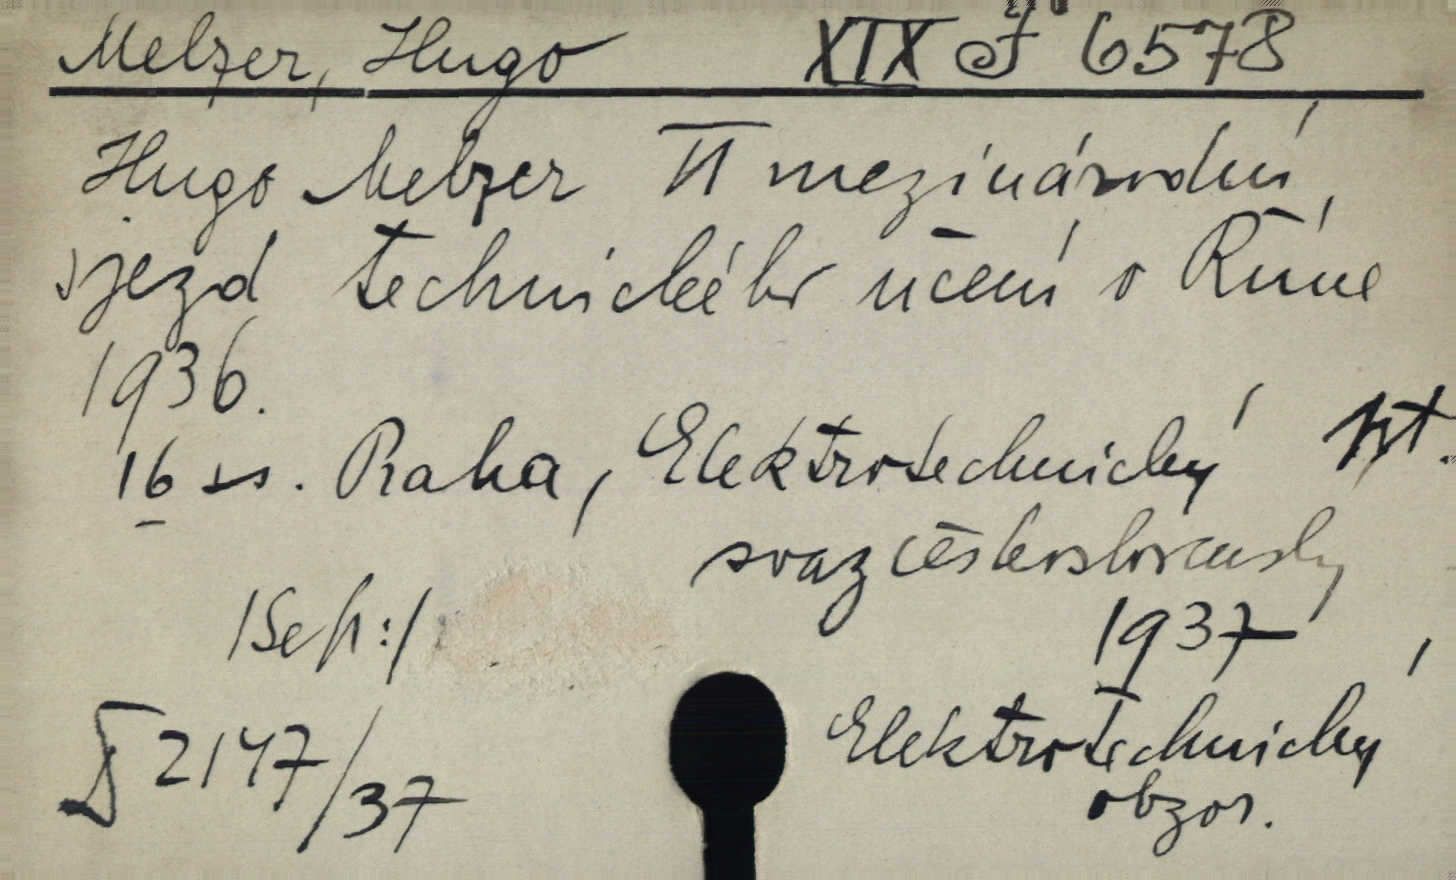 Melzer, Hugo XIX J 6578
Hugo Melzer II mezinárodní
sjezd technického učení v Římě
1936.
16 ss. Praha, Elektrotechnický
svaz československý
1937
|Sep:|
Elektrotechnický
§ 2147/37
obzor.